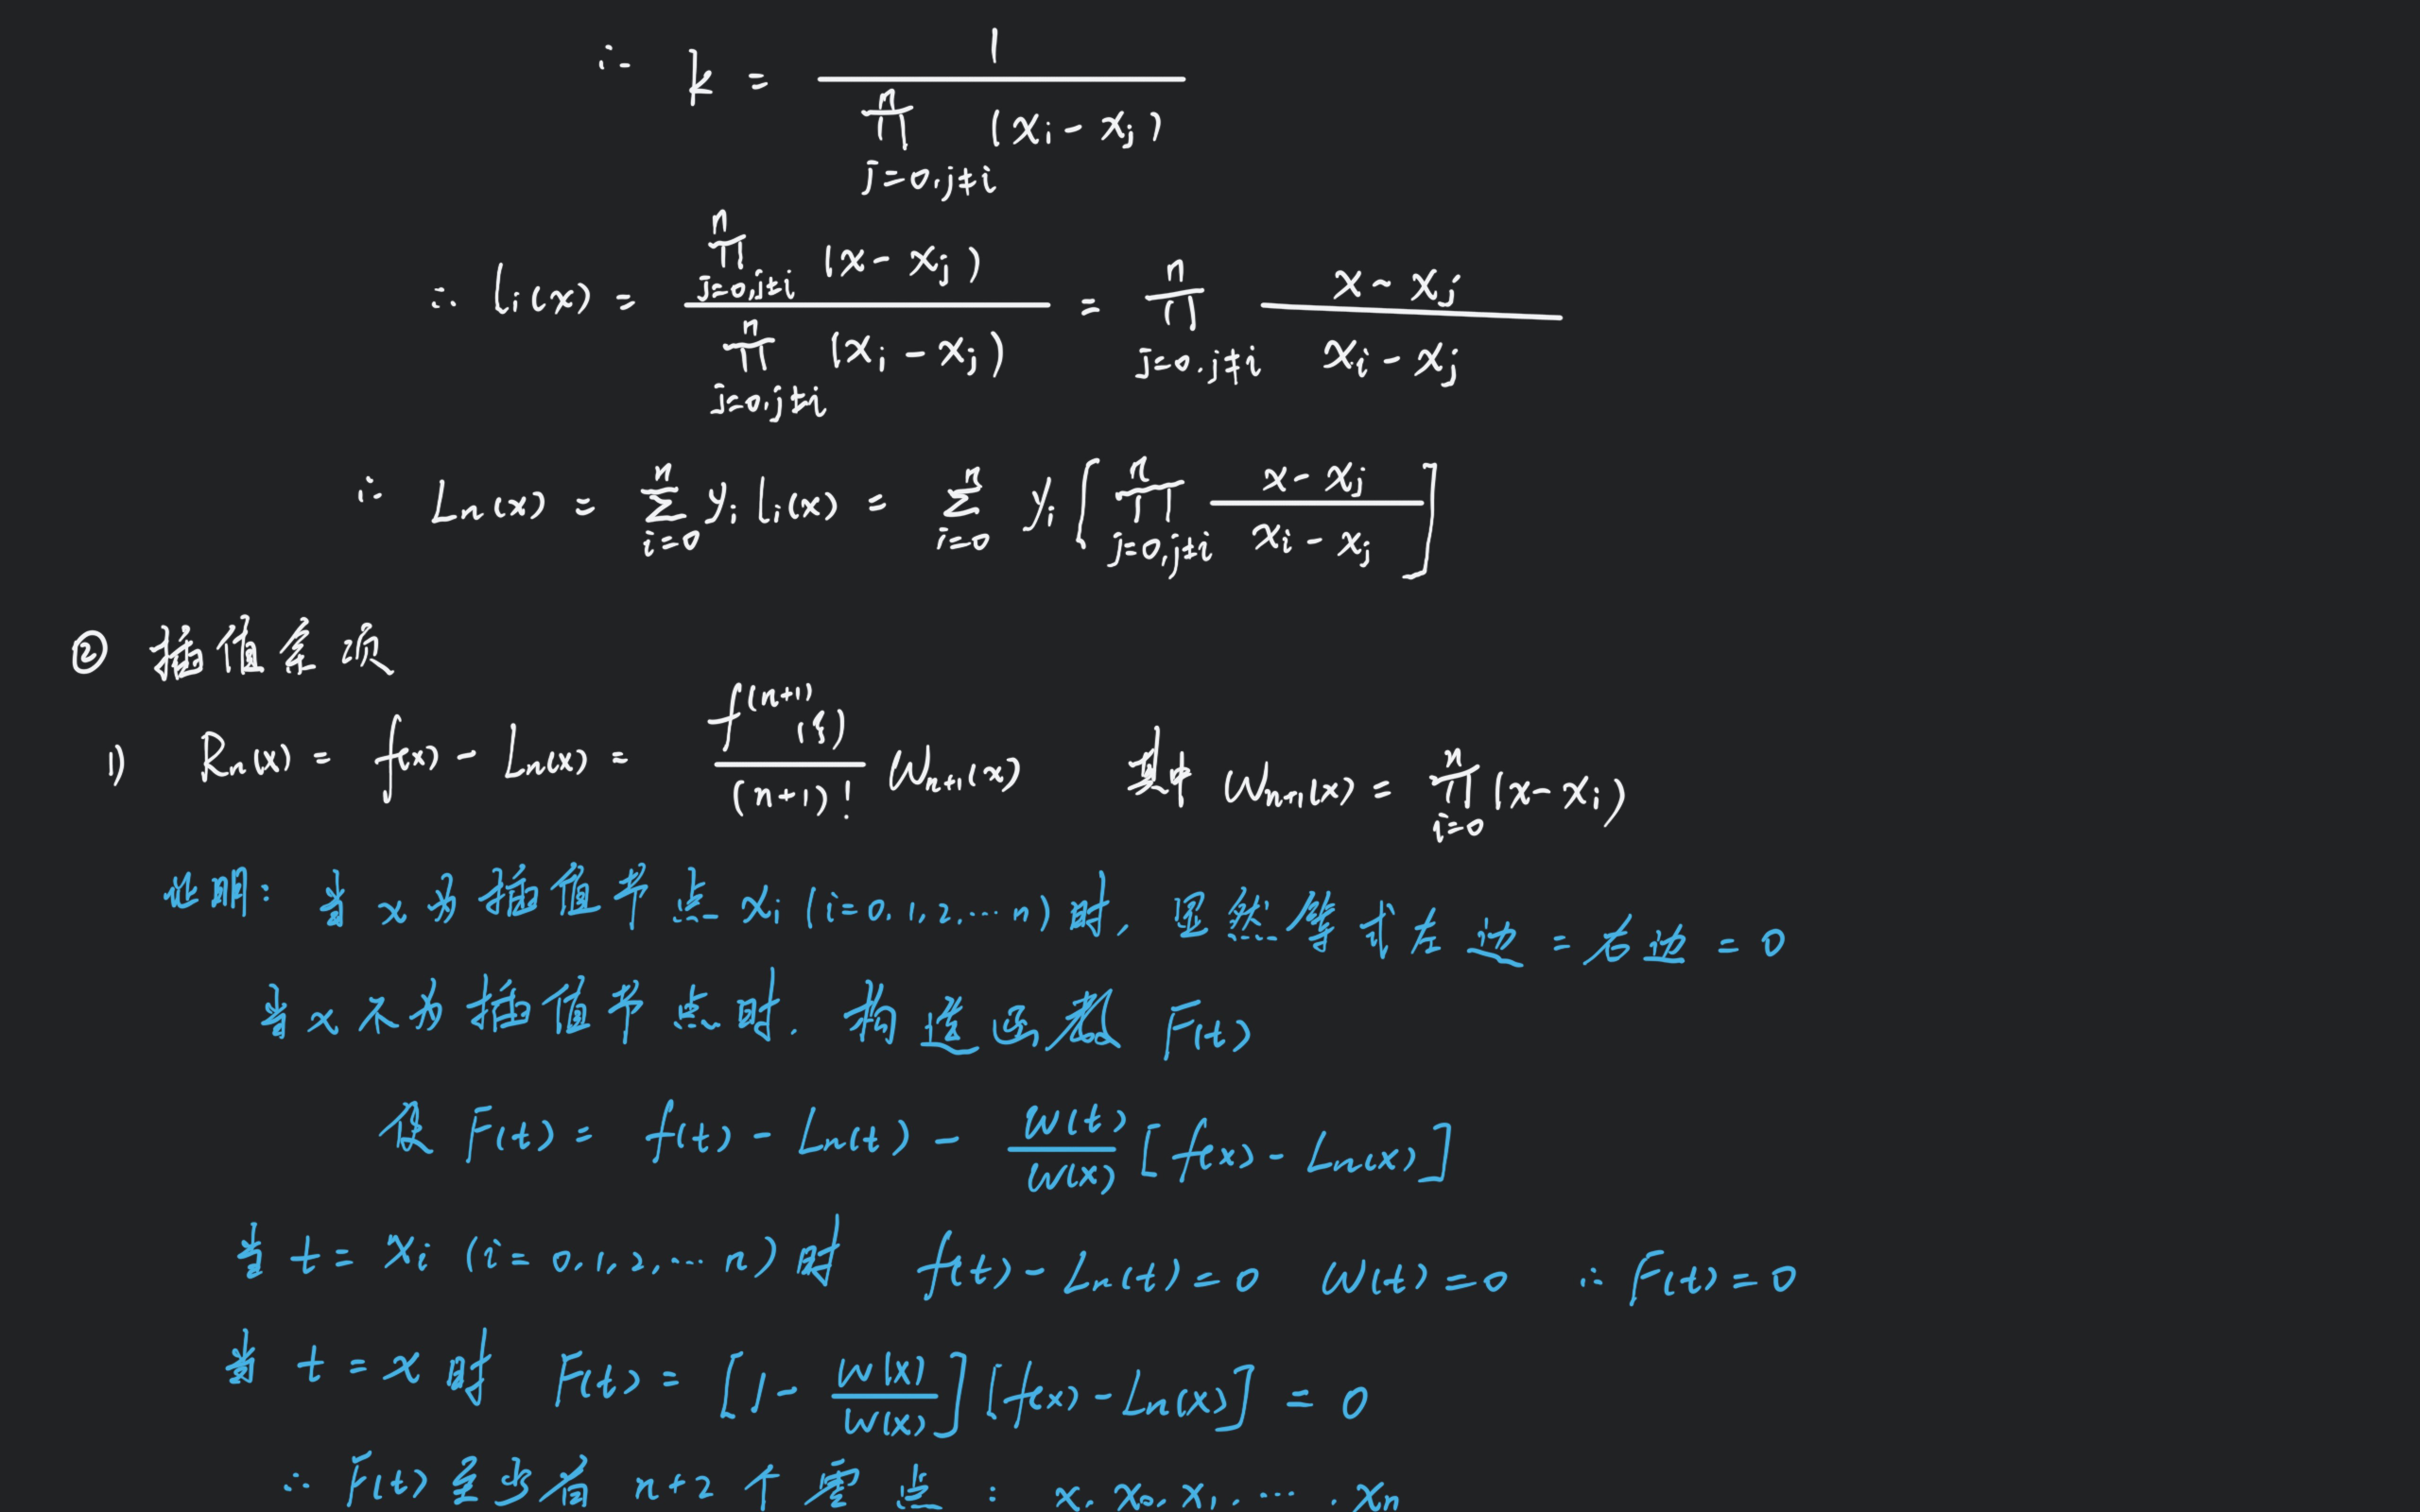 ∴ k = 1 / ∏_{j=0,j≠i}^{n} (x_i - x_j)
∴ l_i(x) = ∏_{j=0,j≠i}^{n} (x - x_j) / ∏_{j=0,j≠i}^{n} (x_i - x_j) = ∏_{j=0,j≠i}^{n} (x - x_j)/(x_i - x_j)
∴ L_n(x) = ∑_{i=0}^{n} y_i l_i(x) = ∑_{i=0}^{n} y_i [∏_{j=0,j≠i}^{n} (x - x_j)/(x_i - x_j)]
② 插值余项
1) R_n(x) = f(x) - L_n(x) = f^{(n+1)}(ξ)/(n+1)! W_{n+1}(x) 其中 W_{n+1}(x) = ∏_{i=0}^{n} (x - x_i)
证明: 当 x 为插值节点 x_i (i=0,1,2,…n) 时, 显然等式左边 = 右边 = 0
当 x 不为插值节点时. 构造函数 F(t)
使 F(t) = f(t) - L_n(t) - W(t)/W(x) [f(x) - L_n(x)]
当 t = x_i (i=0,1,2,…n) 时 f(t) - L_n(t) = 0 W(t) = 0 ∴ F(t) = 0
当 t = x 时 F(t) = [1 - W(x)/W(x)] [f(x) - L_n(x)] = 0
∴ F(t) 至少有 n+2 个零点: x, x_0, x_1, …, x_n